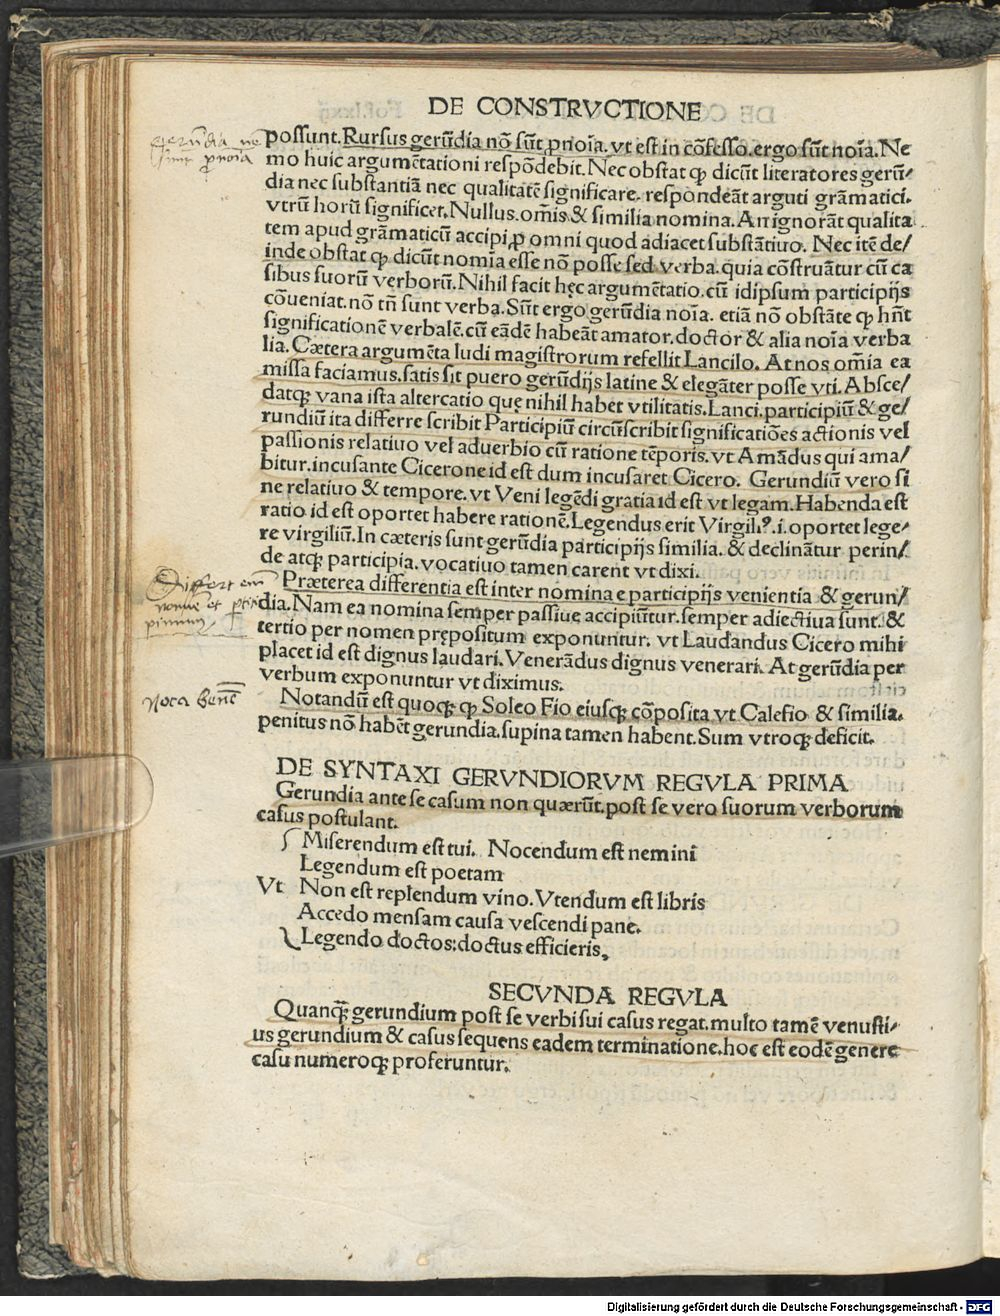 DE CONSTRVCTIONE
possunt. Rursus gerũdia nõ sũt ꝓnoĩa. vt est in cõfesso. ergo sũt noĩa. Ne
mo huic argumẽtationi respõdebit. Nec obstat ꝙ dicũt literatores gerũ/
dia nec substantiã nec qualitatẽ significare. respondeãt arguti grãmatici.
vtrũ horũ significet. Nullus. om̃is & similia nomina. An ignorãt qualita
tem apud grãmaticũ accipi ꝓ omni quod adiacet substãtiuo. Nec itẽ de/
inde obstat ꝙ dicũt nomĩa esse nõ posse sed verba. quia cõstruãtur cũ ca
sibus suorũ verborũ. Nihil facit hęc argumẽtatio. cũ idipsum participijs
cõueniat. nõ tñ sunt verba. Sũt ergo gerũdia noĩa. etiã nõ obstãte ꝙ hñt
significationẽ verbalẽ. cũ eãdẽ habeãt amator. doctor & alia noĩa verba
lia. Cætera argumẽta ludi magistrorum refellit Lancilo. At nos om̃ia ea
missa faciamus. satis sit puero gerũdijs latine & elegãter posse vti. Absce/
datqꝫ vana ista altercatio quę nihil habet vtilitatis. Lanci. participiũ & ge/
rundiũ ita differre scribit Participiũ circũscribit significatiões actionis vel
passionis relatiuo vel aduerbio cũ ratione tẽporis. vt Amãdus qui ama/
bitur. incusante Cicerone id est dum incusaret Cicero. Gerundiũ vero si
ne relatiuo & tempore. vt Veni legẽdi gratia id est vt legam. Habenda est
ratio id est oportet habere rationẽ. Legendus erit Virgilꝰ. i. oportet lege/
re virgiliũ. In cæteris sunt gerũdia participijs similia. & declinãtur perin/
de atqꝫ participia. vocatiuo tamen carent vt dixi.
Præterea differentia est inter nomina e participijs venientia & gerun/
dia. Nam ea nomina semper passiue accipiũtur. semper adiectiua sunt. &
tertio per nomen prępositum exponuntur. vt Laudandus Cicero mihi
placet id est dignus laudari. Venerãdus dignus venerari. At gerũdia per
verbum exponuntur vt diximus.
Nota bene
Notandũ est quoqꝫ ꝙ Soleo Fio eiusqꝫ cõposita vt Calefio & similia.
penitus nõ habẽt gerundia. supina tamen habent. Sum vtroqꝫ deficit.
DE SYNTAXI GERVNDIORVM REGVLA PRIMA
Gerundia ante se casum non quærũt. post se vero suorum verborum
casus postulant.
Miserendum est tui. Nocendum est nemini
Legendum est poetam
Vt Non est replendum vino. Vtendum est libris
Accedo mensam causa vescendi pane.
Legendo doctos: doctus efficieris,
SECVNDA REGVLA
Quanqꝫ̃ gerundium post se verbi sui casus regat. multo tamẽ venusti/
us gerundium & casus sequens eadem terminatione. hoc est eodẽ genere
casu numeroqꝫ proferuntur.
Digitalisierung gefördert durch die Deutsche Forschungsgemeinschaft - DFG